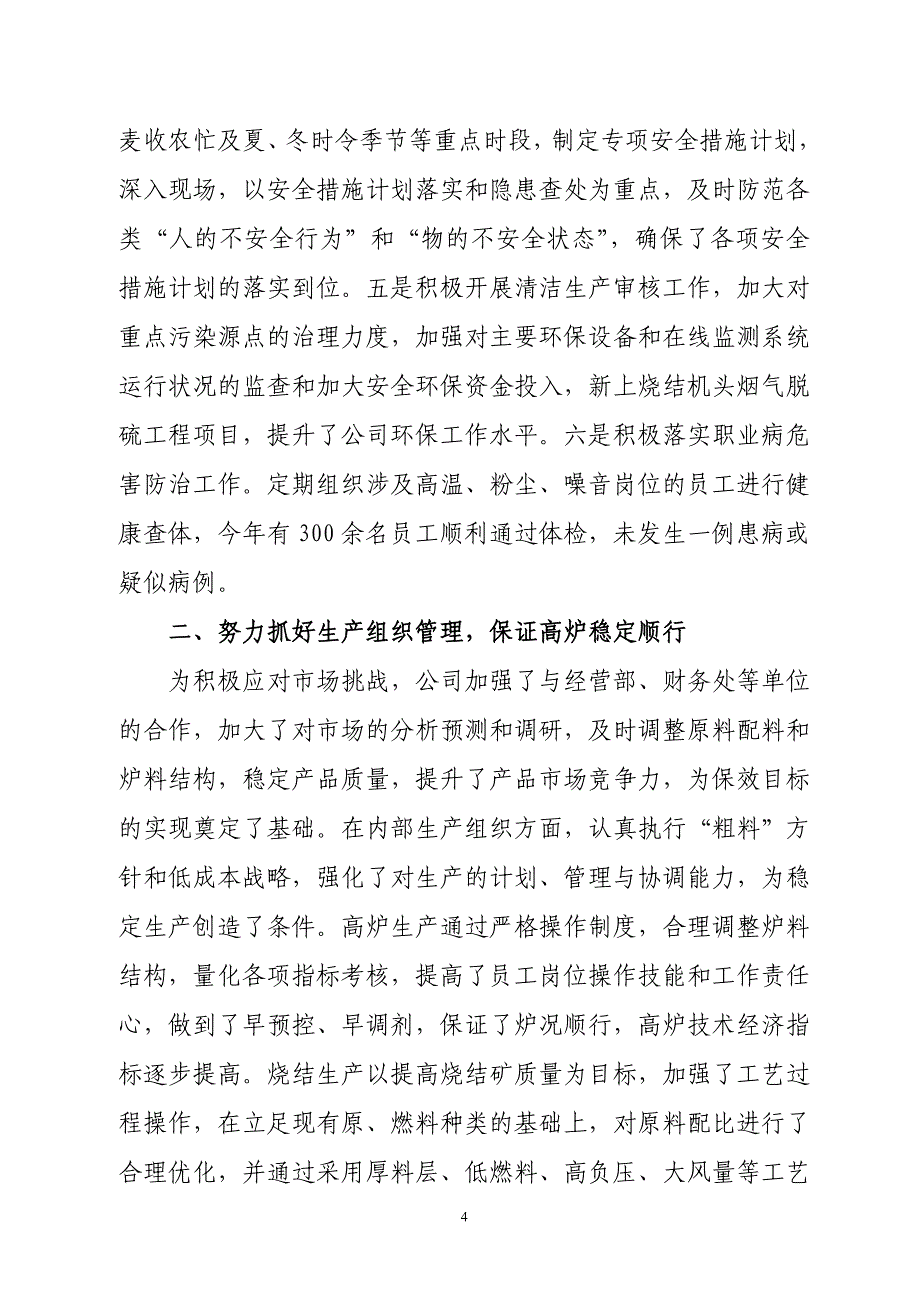 麦收农忙及夏、冬时令季节等重点时段，制定专项安全措施计划，
深入现场，以安全措施计划落实和隐患查处为重点，及时防范各
类“人的不安全行为”和“物的不安全状态”，确保了各项安全
措施计划的落实到位。五是积极开展清洁生产审核工作，加大对
重点污染源点的治理力度，加强对主要环保设备和在线监测系统
运行状况的监查和加大安全环保资金投入，新上烧结机头烟气脱
硫工程项目，提升了公司环保工作水平。六是积极落实职业病危
害防治工作。定期组织涉及高温、粉尘、噪音岗位的员工进行健
康查体，今年有 300 余名员工顺利通过体检，未发生一例患病或
疑似病例。
二、努力抓好生产组织管理，保证高炉稳定顺行
为积极应对市场挑战，公司加强了与经营部、财务处等单位
的合作，加大了对市场的分析预测和调研，及时调整原料配料和
炉料结构，稳定产品质量，提升了产品市场竞争力，为保效目标
的实现奠定了基础。在内部生产组织方面，认真执行“粗料”方
针和低成本战略，强化了对生产的计划、管理与协调能力，为稳
定生产创造了条件。高炉生产通过严格操作制度，合理调整炉料
结构，量化各项指标考核，提高了员工岗位操作技能和工作责任
心，做到了早预控、早调剂，保证了炉况顺行，高炉技术经济指
标逐步提高。烧结生产以提高烧结矿质量为目标，加强了工艺过
程操作，在立足现有原、燃料种类的基础上，对原料配比进行了
合理优化，并通过采用厚料层、低燃料、高负压、大风量等工艺
4